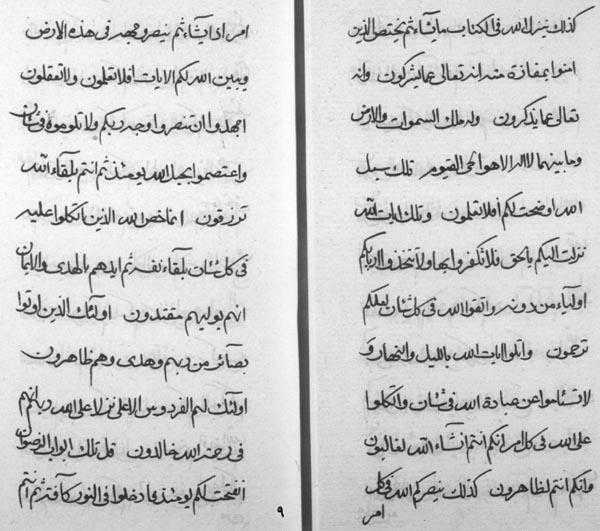 كذلك ينزل الله فى الكتاب ما يشاء ثم يختص الذين
امنوا بمفازة منه انه تعالى عما يشركون وانه
تعالى عما يذكرون وله ملك السموات والارض
وما بينهما لا اله الا هو الحى القيوم تلك سبل
الله اوضحت لكم أفلا تعلمون وتلك ايات الله
نزلت اليكم بالحق فلا تكفروا بها ولا تتخذوا اربابكم
اولياء من دونه واتقوا الله فى كل شئان لعلكم
ترحمون واتلوا ايات الله بالليل والنهار و
لا تسئاموا عن عبادة الله فى شئان واتكلوا
على الله فى كل امر انكم انتم انشاء الله لغالبون
وانكم انتم لظاهرون كذلك ينصركم الله فى كل
امر
امر اذا يشاء ثم ينصر و مجد فى هذه الارض
ويبين الله لكم الايات افلا تعلمون ولا تعقلون
اجهدوا ان تنصروا وجه ربكم ولا تلوموه فى شئان
واعتصموا بحبل الله يومئذ ثم انتم بلقاء الله
ترزقون انما خص الله الذين اتكلوا عليه
فى كل شئان بلقاء نفسه ثم ايدهم بالهدى والايمان
انهم يوليهم مقتدون اولئك الذين اوتوا
بصائر من ربهم وهدى وهم ظاهرون
اولئك لهم الفردوس الاعلى نزلا على الله ربهم انهم
فى رحمة الله خالدون قل تلك ابواب الرضوان
انفتحت لكم يومئذ فادخلوا فى النور كآفة ثم انتم
٩